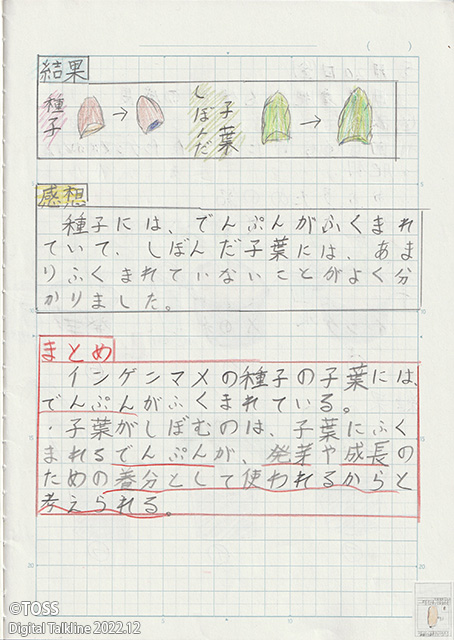 結果
種子
しぼんだ子葉
感想
種子には、でんぷんがふくまれ
ていて、しぼんだ子葉には、あま
りふくまれていないことがよく分
かりました。
まとめ
インゲンマメの種子の子葉には、
でんぷんがふくまれている。
・子葉がしぼむのは、子葉にふく
まれるでんぷんが、発芽や成長の
ための養分として使われるからと
考えられる。
©TOSS
Digital Talkline 2022.12